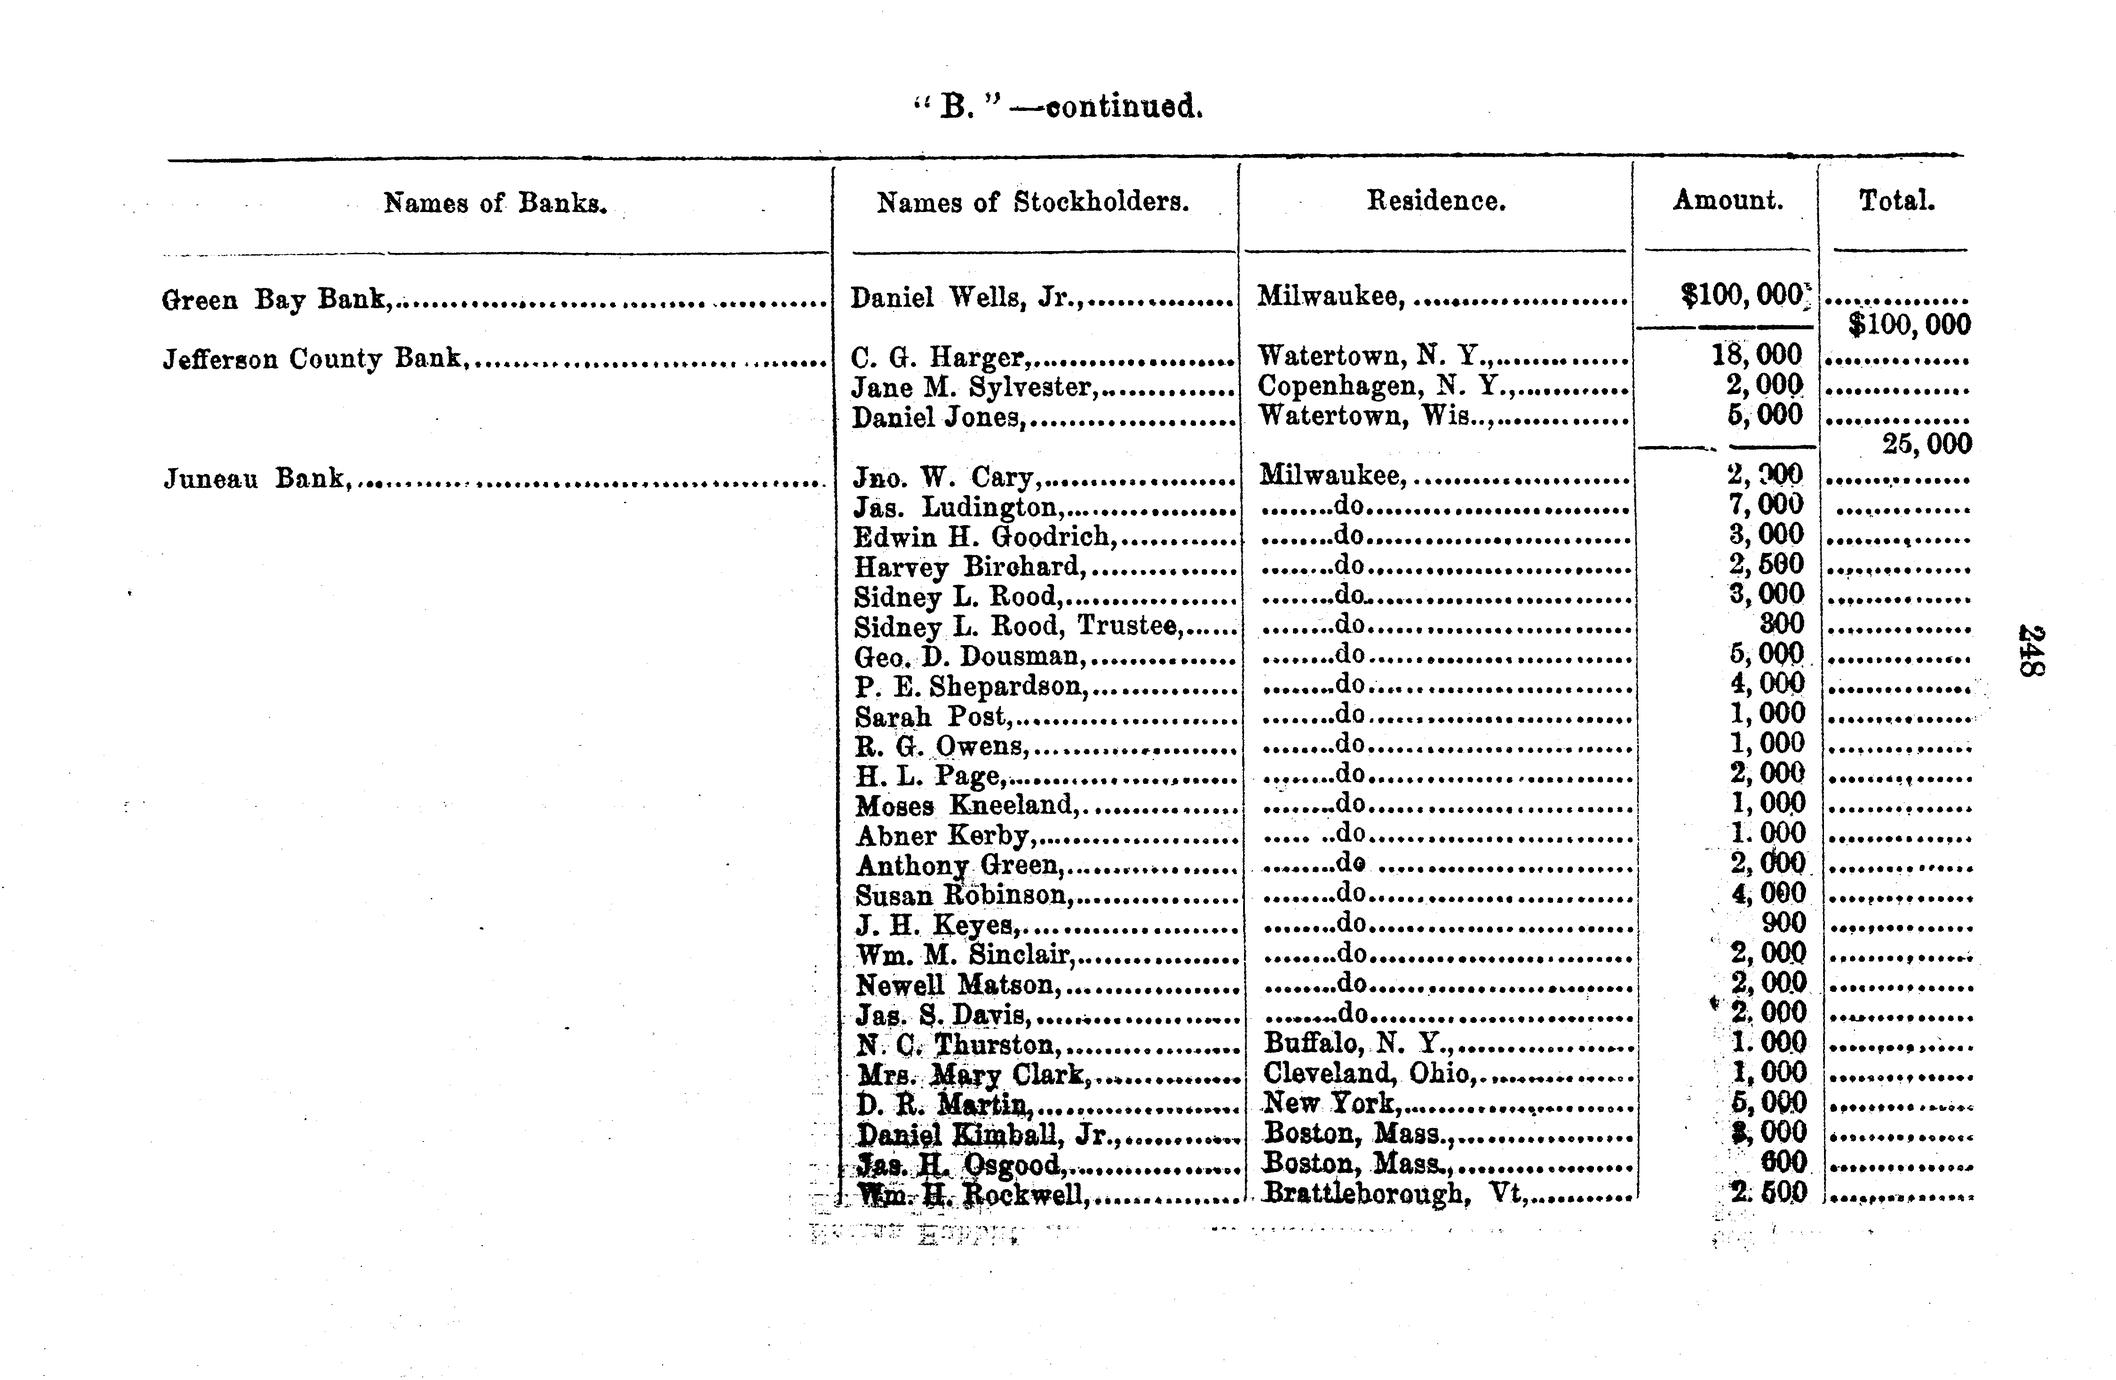 " B. " —continued.
Names of Banks. Names of Stockholders. Residence. Amount. Total.
Green Bay Bank, Daniel Wells, Jr., Milwaukee, $100,000
$100,000
Jefferson County Bank, C. G. Harger, Watertown, N. Y., 18,000
Jane M. Sylvester, Copenhagen, N. Y., 2,000
Daniel Jones, Watertown, Wis.., 5,000
25,000
Juneau Bank, Jno. W. Cary, Milwaukee, 2,000
Jas. Ludington, do 7,000
Edwin H. Goodrich, do 3,000
Harvey Birchard, do 2,500
Sidney L. Rood, do 3,000
Sidney L. Rood, Trustee, do 300
Geo. D. Dousman, do 5,000
P. E. Shepardson, do 4,000
Sarah Post, do 1,000
R. G. Owens, do 1,000
H. L. Page, do 2,000
Moses Kneeland, do 1,000
Abner Kerby, do 1.000
Anthony Green, do 2,000
Susan Robinson, do 4,000
J. H. Keyes, do 900
Wm. M. Sinclair, do 2,000
Newell Matson, do 2,000
Jas. S. Davis, do 2.000
N. C. Thurston, Buffalo, N. Y., 1.000
Mrs. Mary Clark, Cleveland, Ohio, 1,000
D. R. Martin, New York, 5,000
Daniel Kimball, Jr., Boston, Mass.,
Jas. H. Osgood, Boston, Mass.,
Wm. H. Rockwell, Brattleborough, Vt, 2.500
248